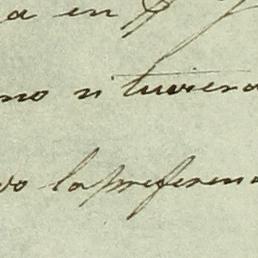 a en
no si tuviera
vo la preferen